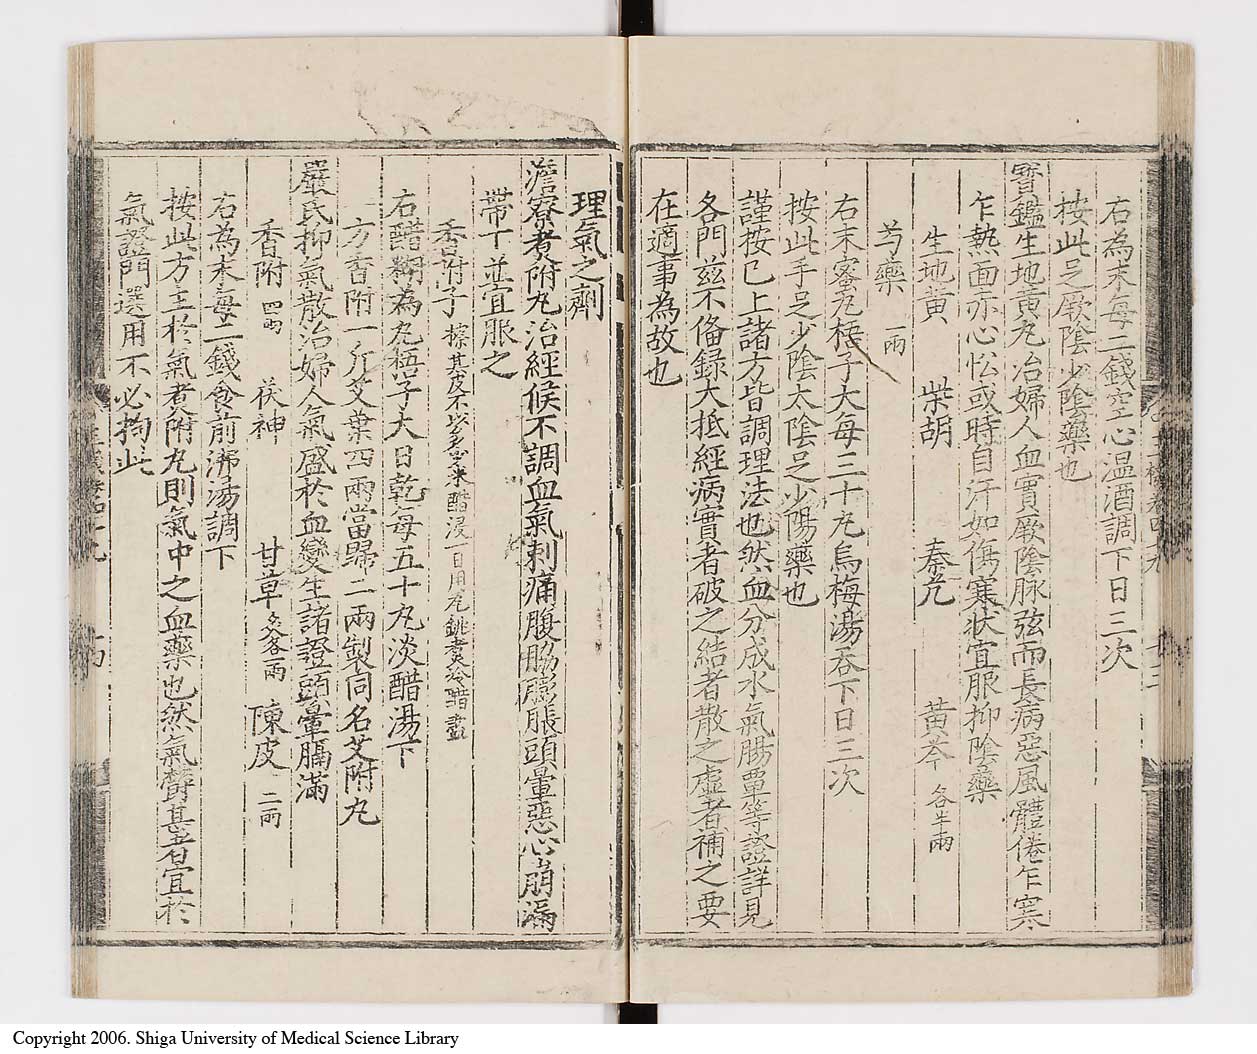 右為末每二錢空心温酒調下日三次
按此足厥陰少陰藥也
寳鑑生地黄丸治婦人血實厥陰脉弦而長病惡風體倦乍寒
乍熱面赤心忪或時自汗如傷寒狀宜服抑陰藥
生地黄 柴胡 秦艽 黄芩 各半兩
芍藥 一兩
右末蜜丸梧子大每三十丸烏梅湯吞下日三次
按此手足少陰太陰足少陽藥也
謹按已上諸方皆調理法也然血分成水氣腸覃等證詳見
各門兹不俻録大抵經病實者破之結者散之虛者補之要
在適事為故也
理氣之劑
澹寮煮附丸治經候不調血氣刺痛腹脇膨脹頭暈惡心崩漏
帶下並宜服之
香附子 擦其皮不以多少米醋浸一日用瓦銚煮令醋盡
右醋糊為丸梧子大日乾每五十丸淡醋湯下
一方香附一斤艾葉四兩當歸二兩製同名艾附丸
嚴氏抑氣散治婦人氣盛於血變生諸證頭暈膈滿
香附 四兩 茯神 甘草 炙各一兩 陳皮 二兩
右為末每二錢食前沸湯調下
按此方主於氣煮附丸則氣中之血藥也然氣欝甚者宜於
氣證門選用不必拘此